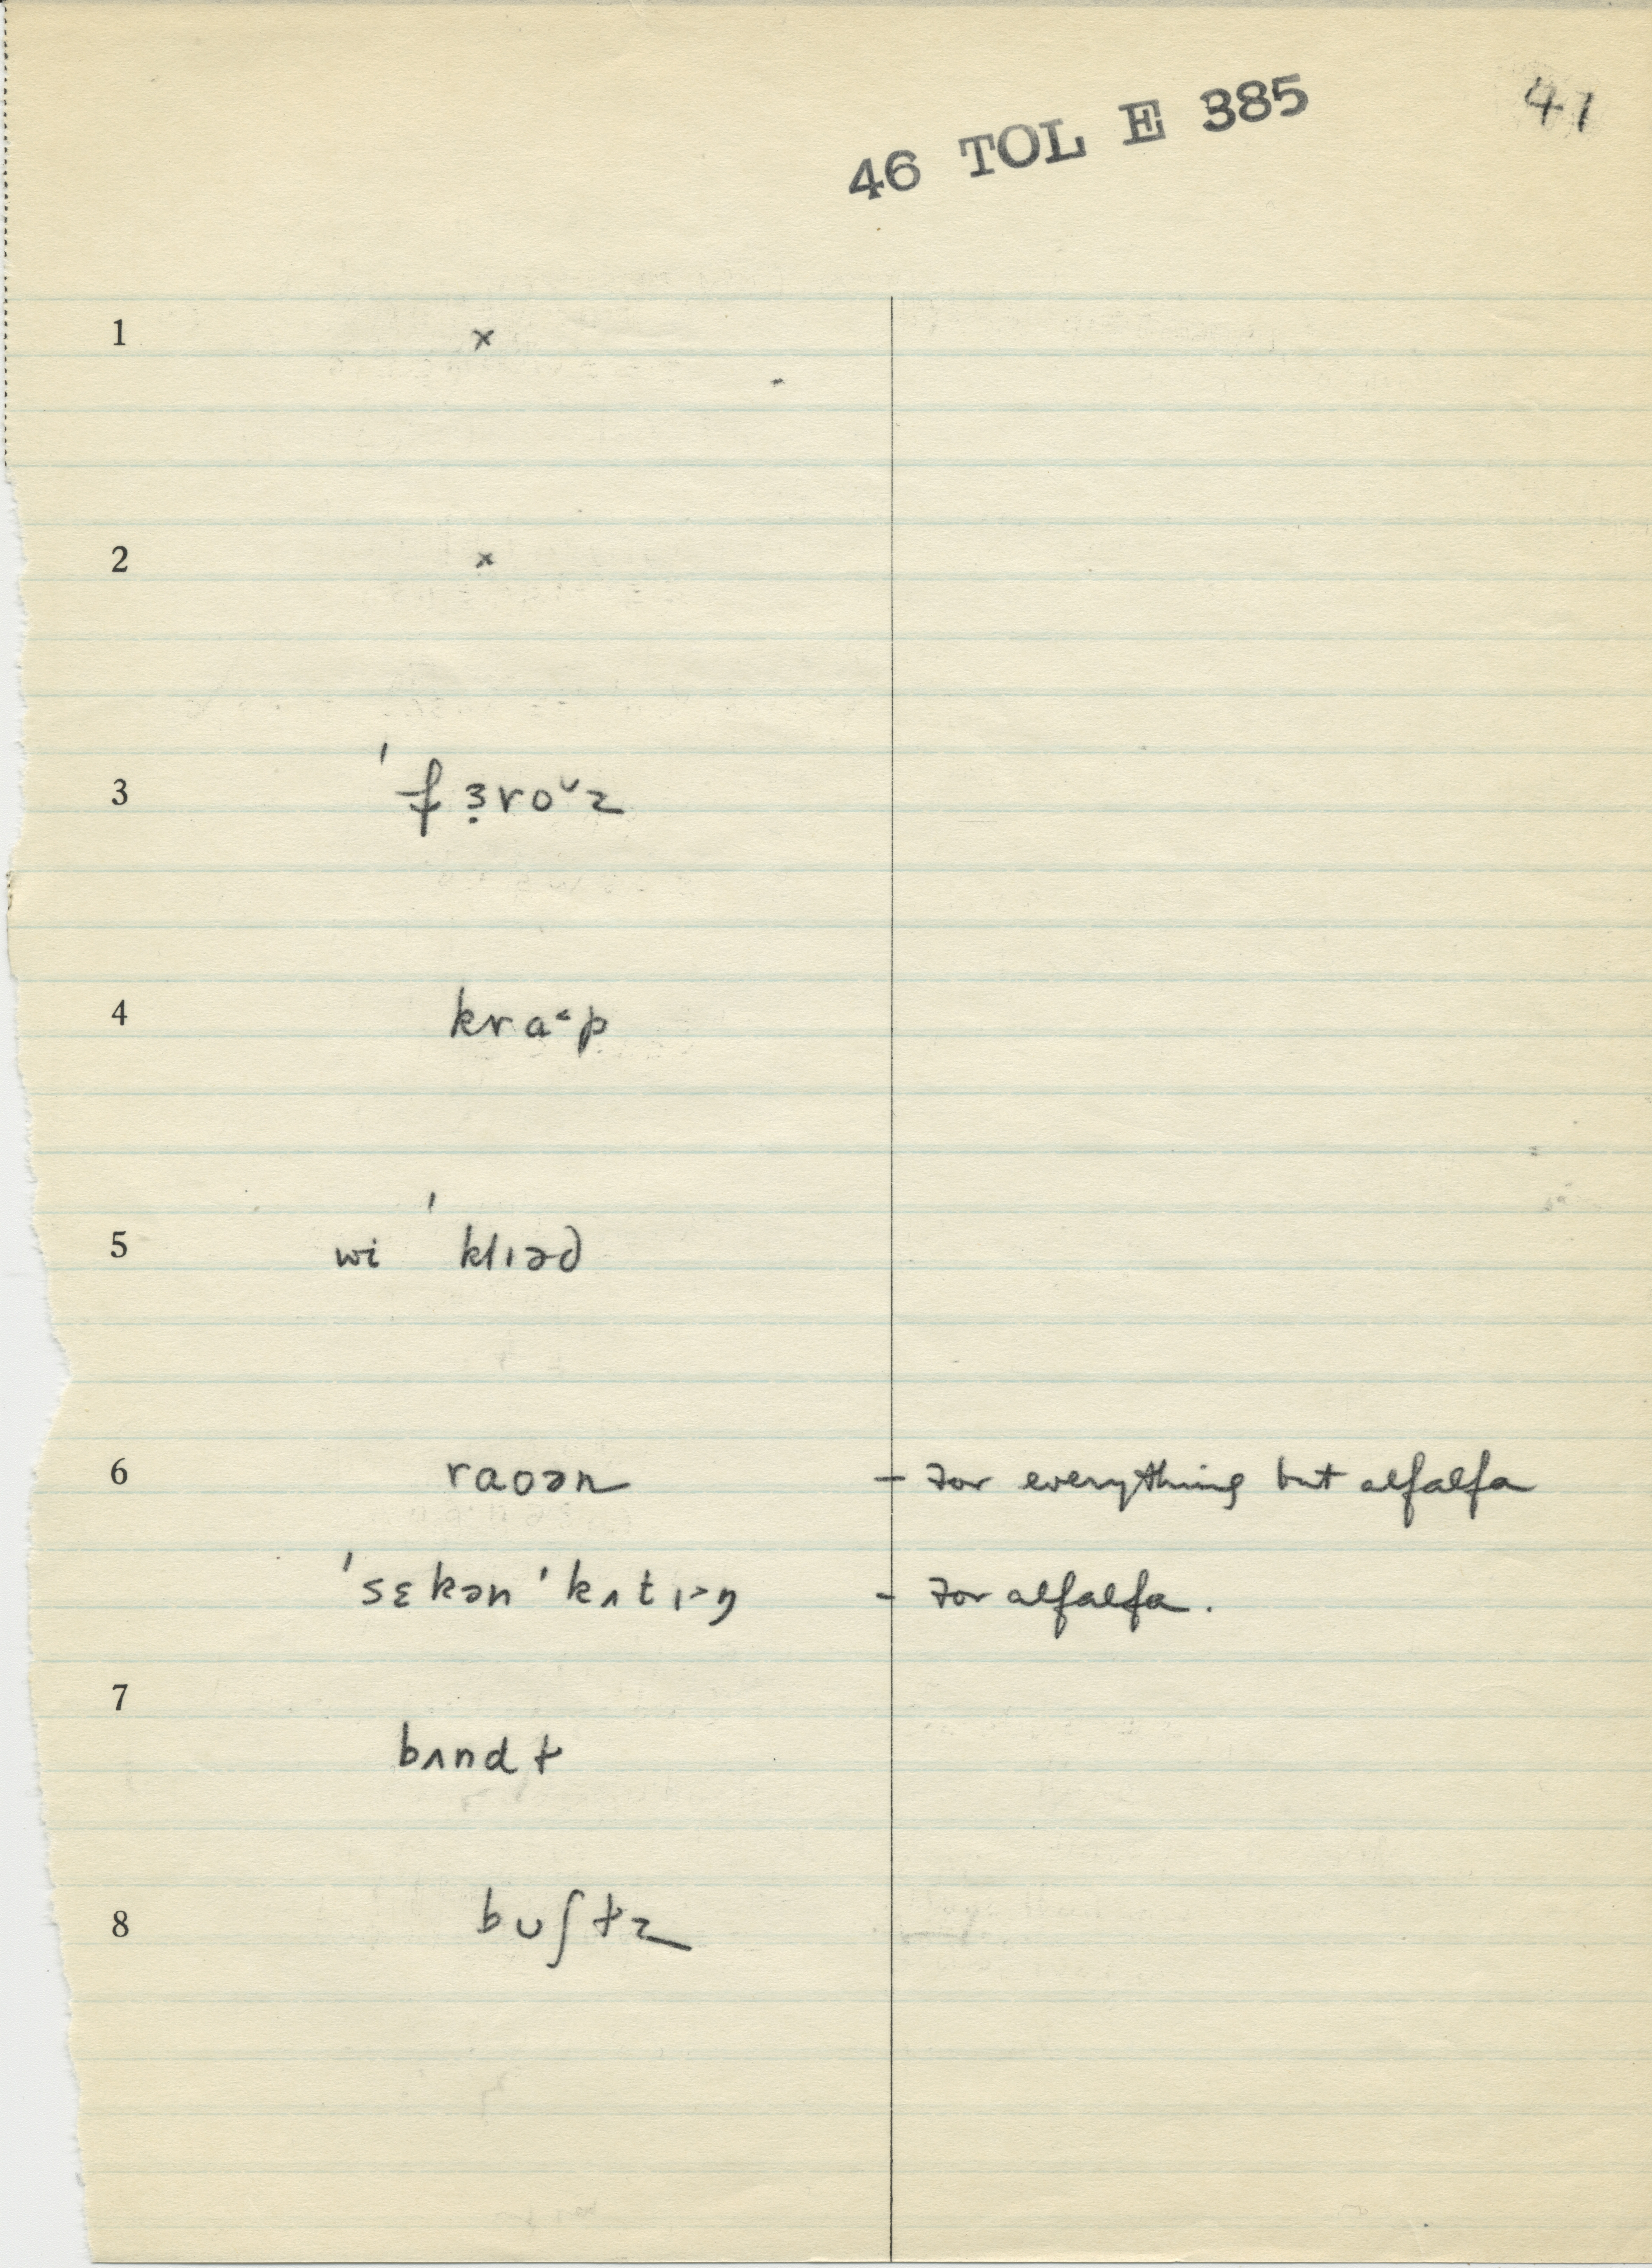 46 TOL E 385
41
1 ×
2 ×
3 ˈfɜ̣roᴗz
4 kra˂p
5 wi ˈklɪəd
6 raoən - for everything but alfalfa
ˈsɛkən ˈkʌtɪ˃ŋ - for alfalfa.
7
bʌndɫ
8 buʃɫz